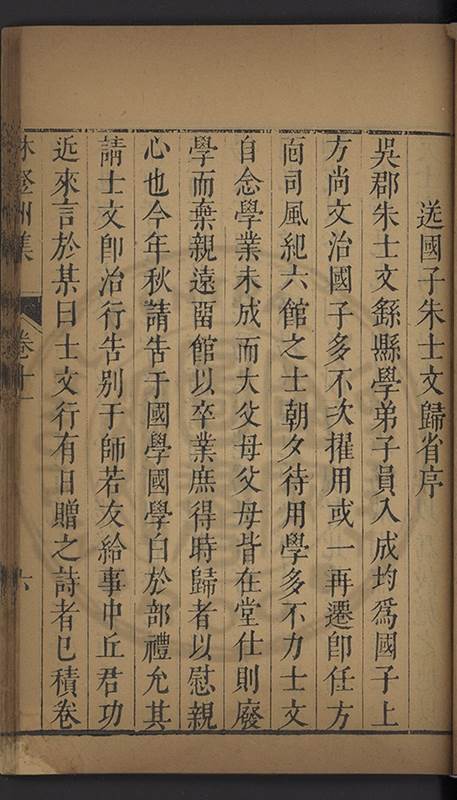 送國子朱士文歸省序
吳郡朱士文繇縣學弟子員入成均爲國子上
方尚文治國子多不次擢用或一再遷卽任方
面司風紀六館之士朝夕待用學多不力士文
自念學業未成而大父母父母皆在堂仕則廢
學而棄親遠畱館以卒業庶得時歸者以慰親
心也今年秋請告于國學國學白於部禮允其
請士文卽治行告别于師若友給事中丘君功
近來言於某曰士文行有日贈之詩者已積卷
林登州集
卷十一
六